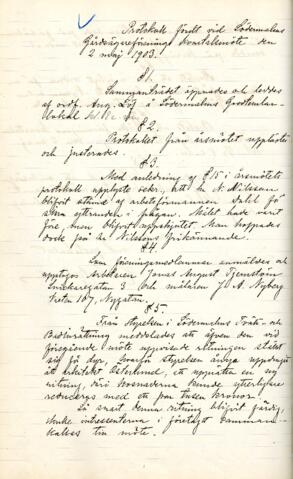 Protokoll fördt vid Södermalms
Gårdsägareförenings kvartalsmöte den
2 maj 1903.
§ 1.
Sammanträdet öppnades och leddes
af ordf. Aug. Löf å Södermalms Goodtemplar-
lokal
§ 2.
Protokollet från årsmötet upplästes
och justerades.
§ 3.
Med anledning af § 15 i årsmötets
protokoll upplyste sekr. att hr N. Nilsson
blifvit stämd af arbetsförmannen Dahl för
sina yttranden i frågan. Målet hade varit
före, men blifvit uppskjutet. Man hoppades
dock på hr Nilssons frikännande.
§ 4
Som föreningsmedlemmar anmäldes och
upptogos Arbetaren Jonas August Tjernström
Snickaregatan 3 och målaren J. A. Nyberg
167, Nygatan.
§ 5.
Från styrelsen i Södermalms Tvätt- och
Badinrättning meddelades att äfven den vid
föregående möte uppvisade ritningen ställt
sig för dyr, hvarför styrelsen ånyo uppdragit
åt arkitekt Österlund, att upprätta en ny
ritning, däri kostnaderna kunde ytterligare
reduceras med ett par tusen kronor.
Så snart denna ritning blifvit färdig,
skulle intressenterna i företaget samman-
kallas till möte.